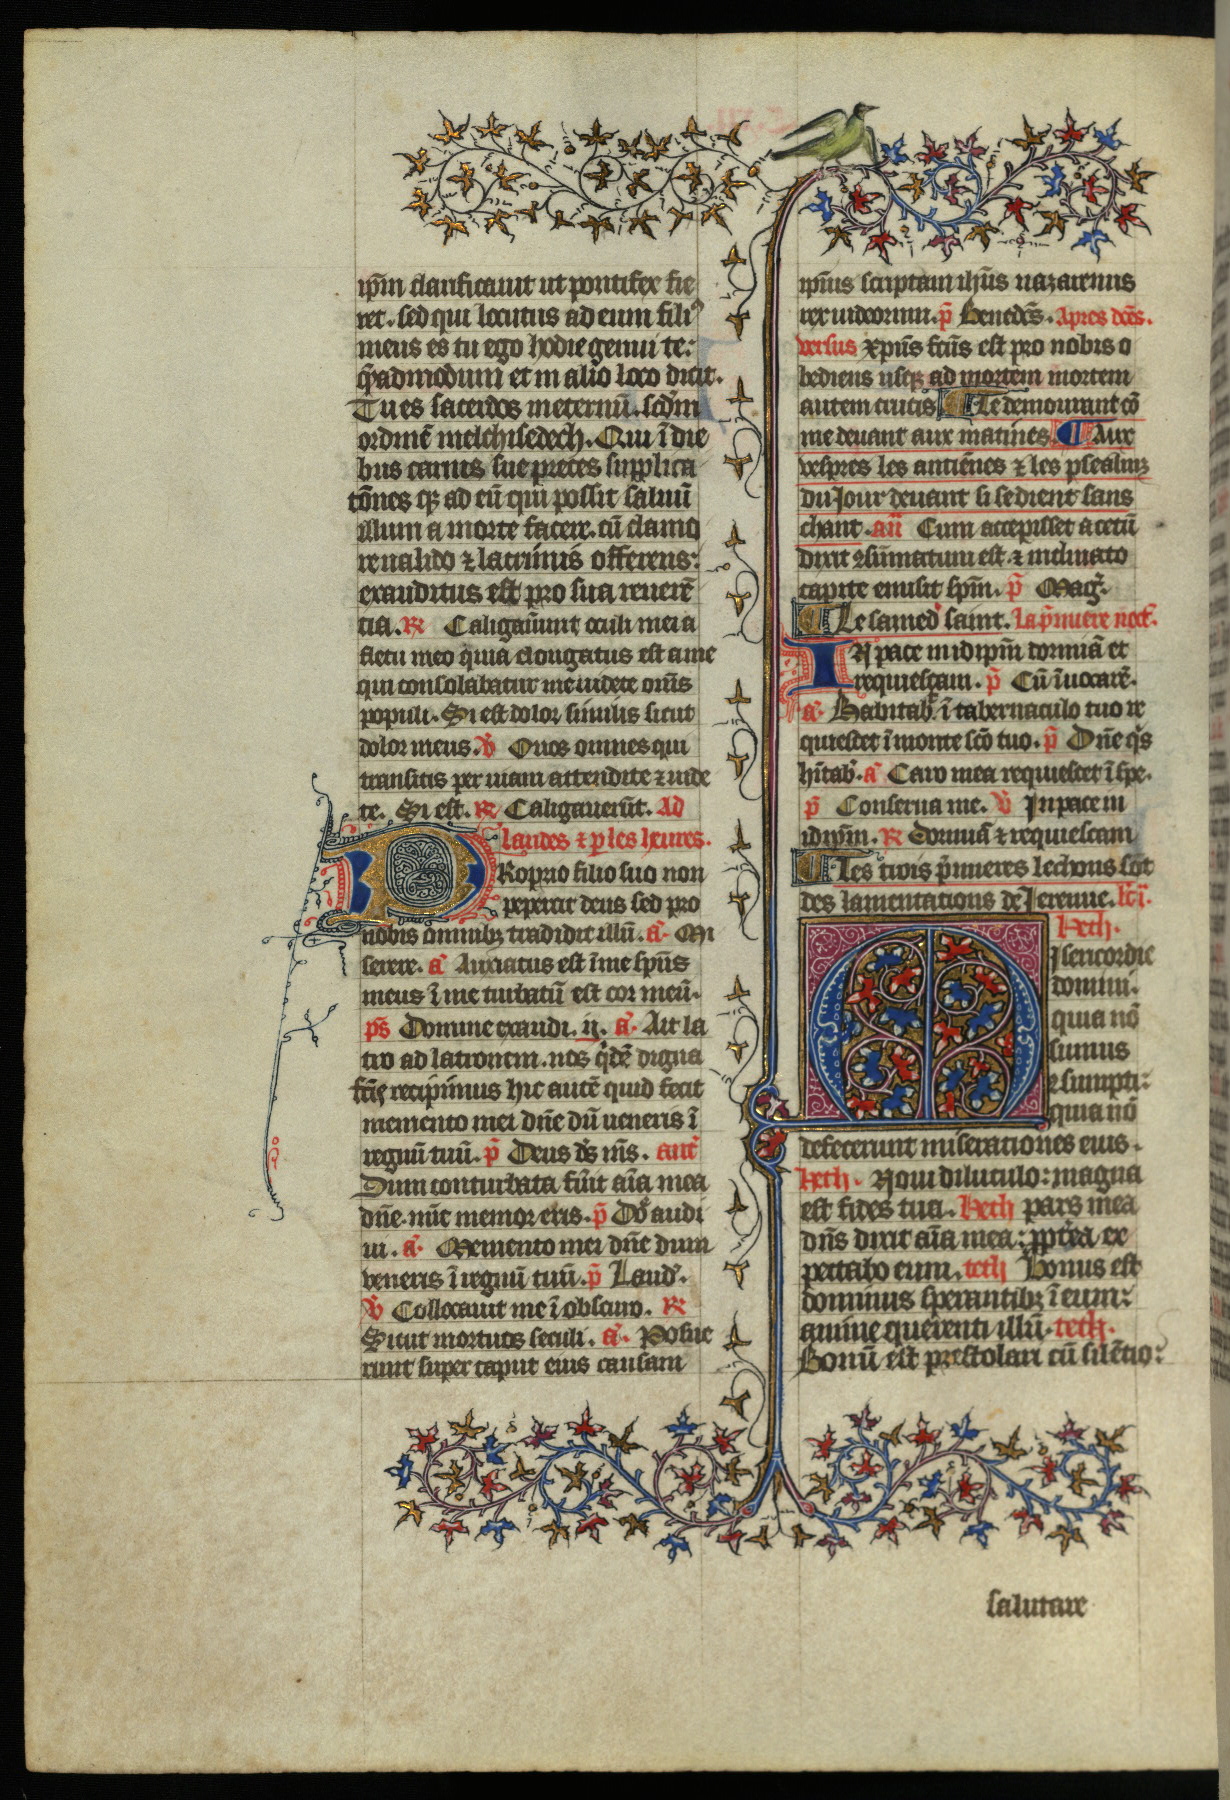 ip̄m clarificauit ut pontifex fie
ret. sed qui locutus ad eum fili9
meus es tu ego hodie genui te:
q̄admodum et in alio loco dicit.
Tu es sacerdos meternū. scd̄m
ordinē melchisedech. Qui ī die
bus carnis sue preces supplica
tōnes qꝫ ad eū qui possit saluū
illum a morte facere. cū clamo
re ualido ⁊ lacrimis offerens:
exauditus est pro sua reuerē
tia. R̄ Caligauūnt oculi mei a
fletu meo quia elongatus est a me
qui consolabatur me uidete om̄s
populi. Si est dolor similis sicut
dolor meus. v̄ O uos omnes qui
transitis per uiam attendite ⁊ uide
te. Si est. R̄ Caligauerūt. Ad
laudes ⁊ p les heures.
PRoprio filio suo non
pepercit deus sed pro
nobis omnibꝫ tradidit illū. a. Mi
serere. a Anxiatus est ī me sp̄us
meus ī me turbatū est cor meū.
ps̄ Domine exaudi. ij. a. Ait la
tro ad latronem. nos q̇dē digna
fc̄is recipimus hic autē quid fecit
memento mei dn̄e dū ueneris ī
regnū tuū. p̄ Deus d̄s m̄s. ant̄
Dum conturbata fūit aīa mea
dn̄e. nūc memor eris. p̄ Dn̄e audi
ui. a. Memento mei dn̄e dum
veneris ī regnū tuū. p̄ Laud̄.
v̄ Collocauit me ī obscuro. R̄
Sicut mortuos seculi. a. Posue
runt super caput eius causam
ipīus scriptam ih̄us nazarenus
rex iudeorum. p̄ Benedc̄s. Apres dc̄s.
versus xp̄us fc̄us est pro nobis o
bediens usqꝫ ad mortem mortem
autem crucis ¶ Le demourant cō
me deuant aux matines ¶ Aux
vespres les antiēnes ⁊ les psealmꝫ
du Jour deuant si se dient sans
chant. an̄ Cum accepisset acetū
dixit ꝯsūmatum est. ⁊ inclinato
capite emisit sp̄m. p̄ Mag̃.
¶ Le samed̃ saint. la p̄miere noct̃.
IN pace in idip̄m dormiā et
requiescam. p̄ Cū īuocarē.
a. Habitab̃ ī tabernaculo tuo re
quiescet ī monte sc̄o tuo. p̄ Dn̄e q̇s
hītab̃. a Caro mea requiescet ī spe.
p̄ Conserua me. v̄ In pace in
idip̄m. R̄ Dormiā ⁊ requiescam
¶ Les trois p̄mieres lechons sōt
des lamentations de Jeremie. lc̄ i.
Heth.
MIsericordie
domini.
quia nō
sumus
ꝯsumpti:
quia nō
defecerunt miserationes eius.
Heth. Noui diluculo: magna
est fides tua. Heth pars mea
dn̄s dixit aīa mea: ꝓpt̄ea ex
pectabo eum. teth Bonus est
dominus sperantibꝫ ī eum:
anime querenti illū. teth.
Bonū est prestolari cū silētio:
salutare